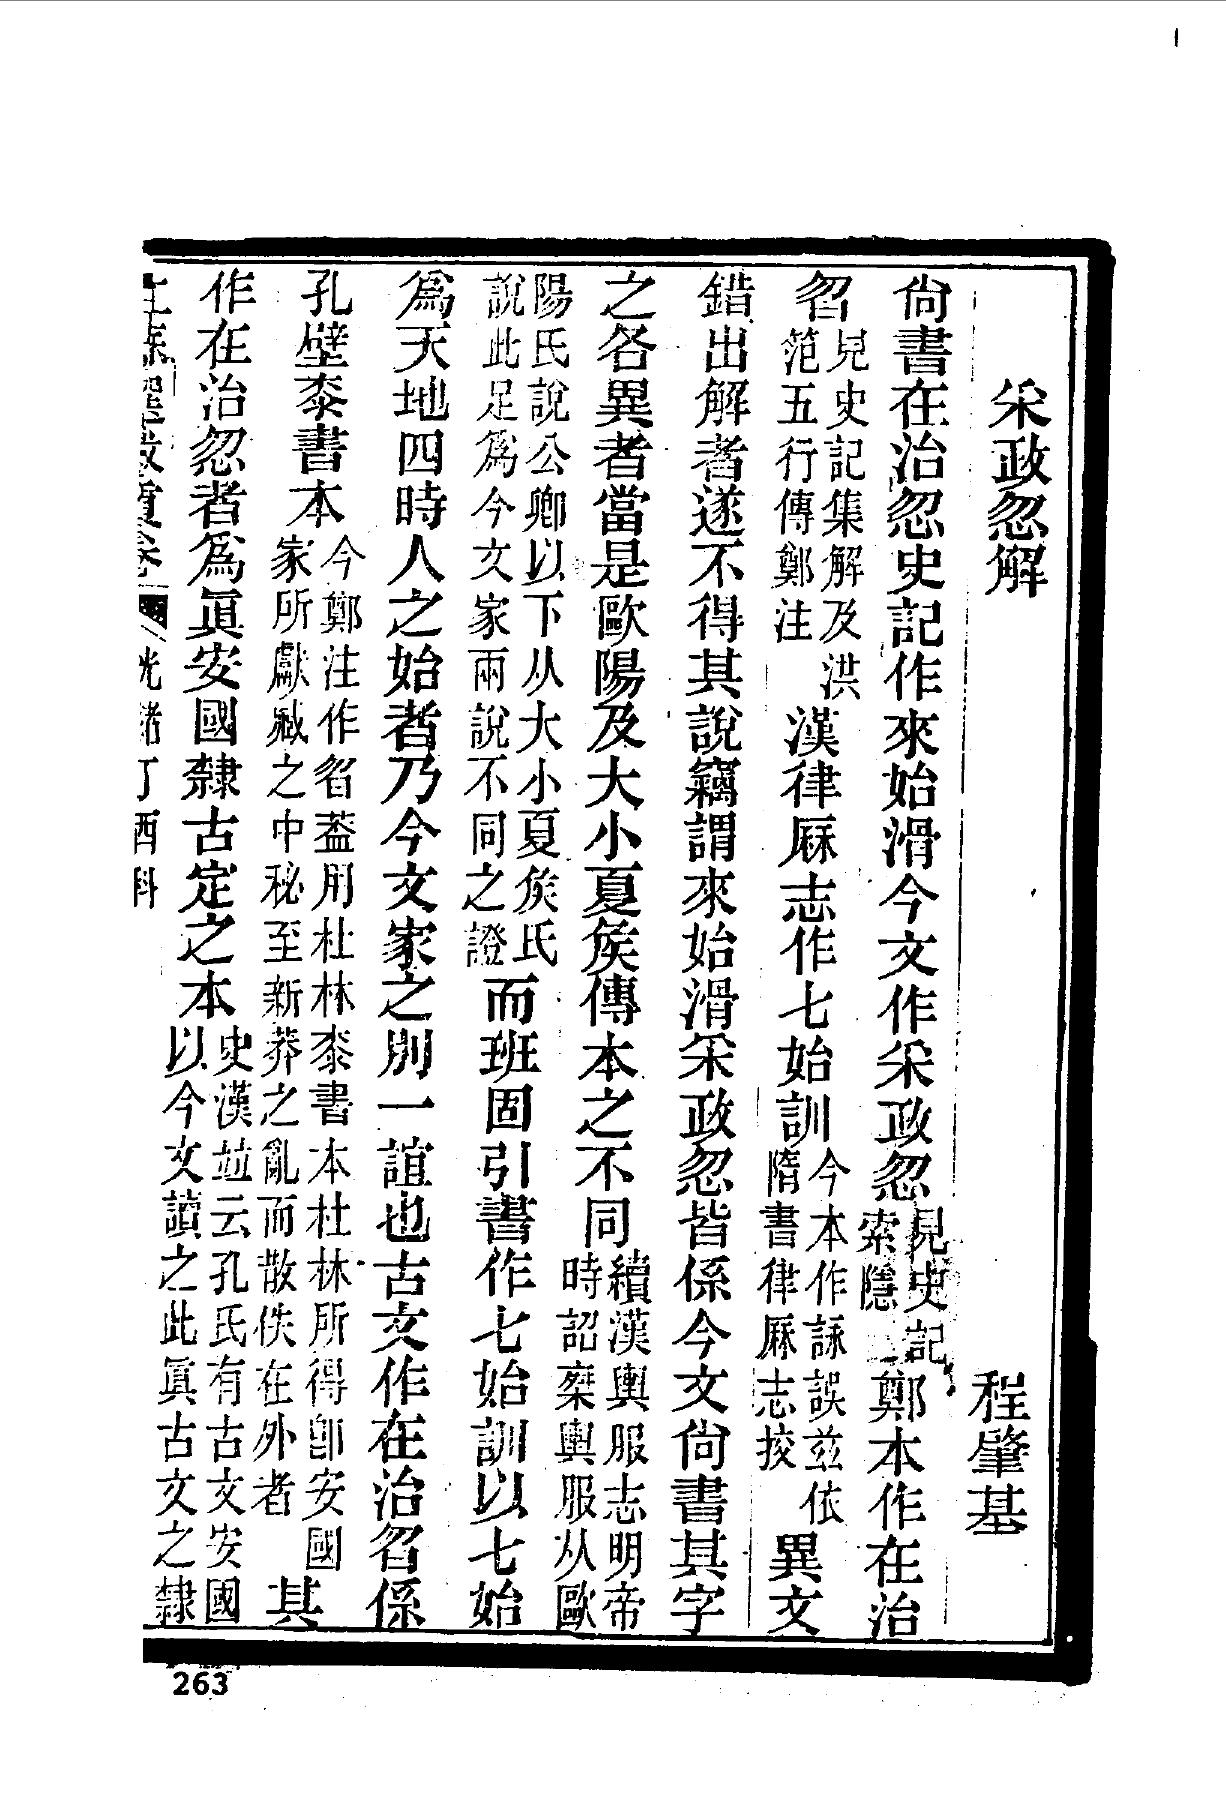 采政忽解　程肇基
尙書在治忽史記作來始滑今文作采政忽見史記索隱鄭本作在治
曶見史記集解及洪范五行傳鄭注漢律厤志作七始訓今本作詠誤茲依隋書律厤志挍異文
錯出解者遂不得其說竊謂來始滑采政忽皆係今文尙書其字
之各異者當是歐陽及大小夏矦傳本之不同續漢輿服志明帝時詔椉輿服从歐
陽氏說公卿以下从大小夏矦氏說此足爲今文家兩說不同之證而班固引書作七始訓以七始
爲天地四時人之始者乃今文家之別一誼也古文作在治曶係
孔壁桼書本今鄭注作曶葢用杜林桼書本杜林所得卽安國家所獻臧之中秘至新莽之亂而散佚在外者其
作在治忽者爲眞安國隸古定之本史漢竝云孔氏有古文安國以今文讀之此眞古文之隸
光緒丁酉科
263